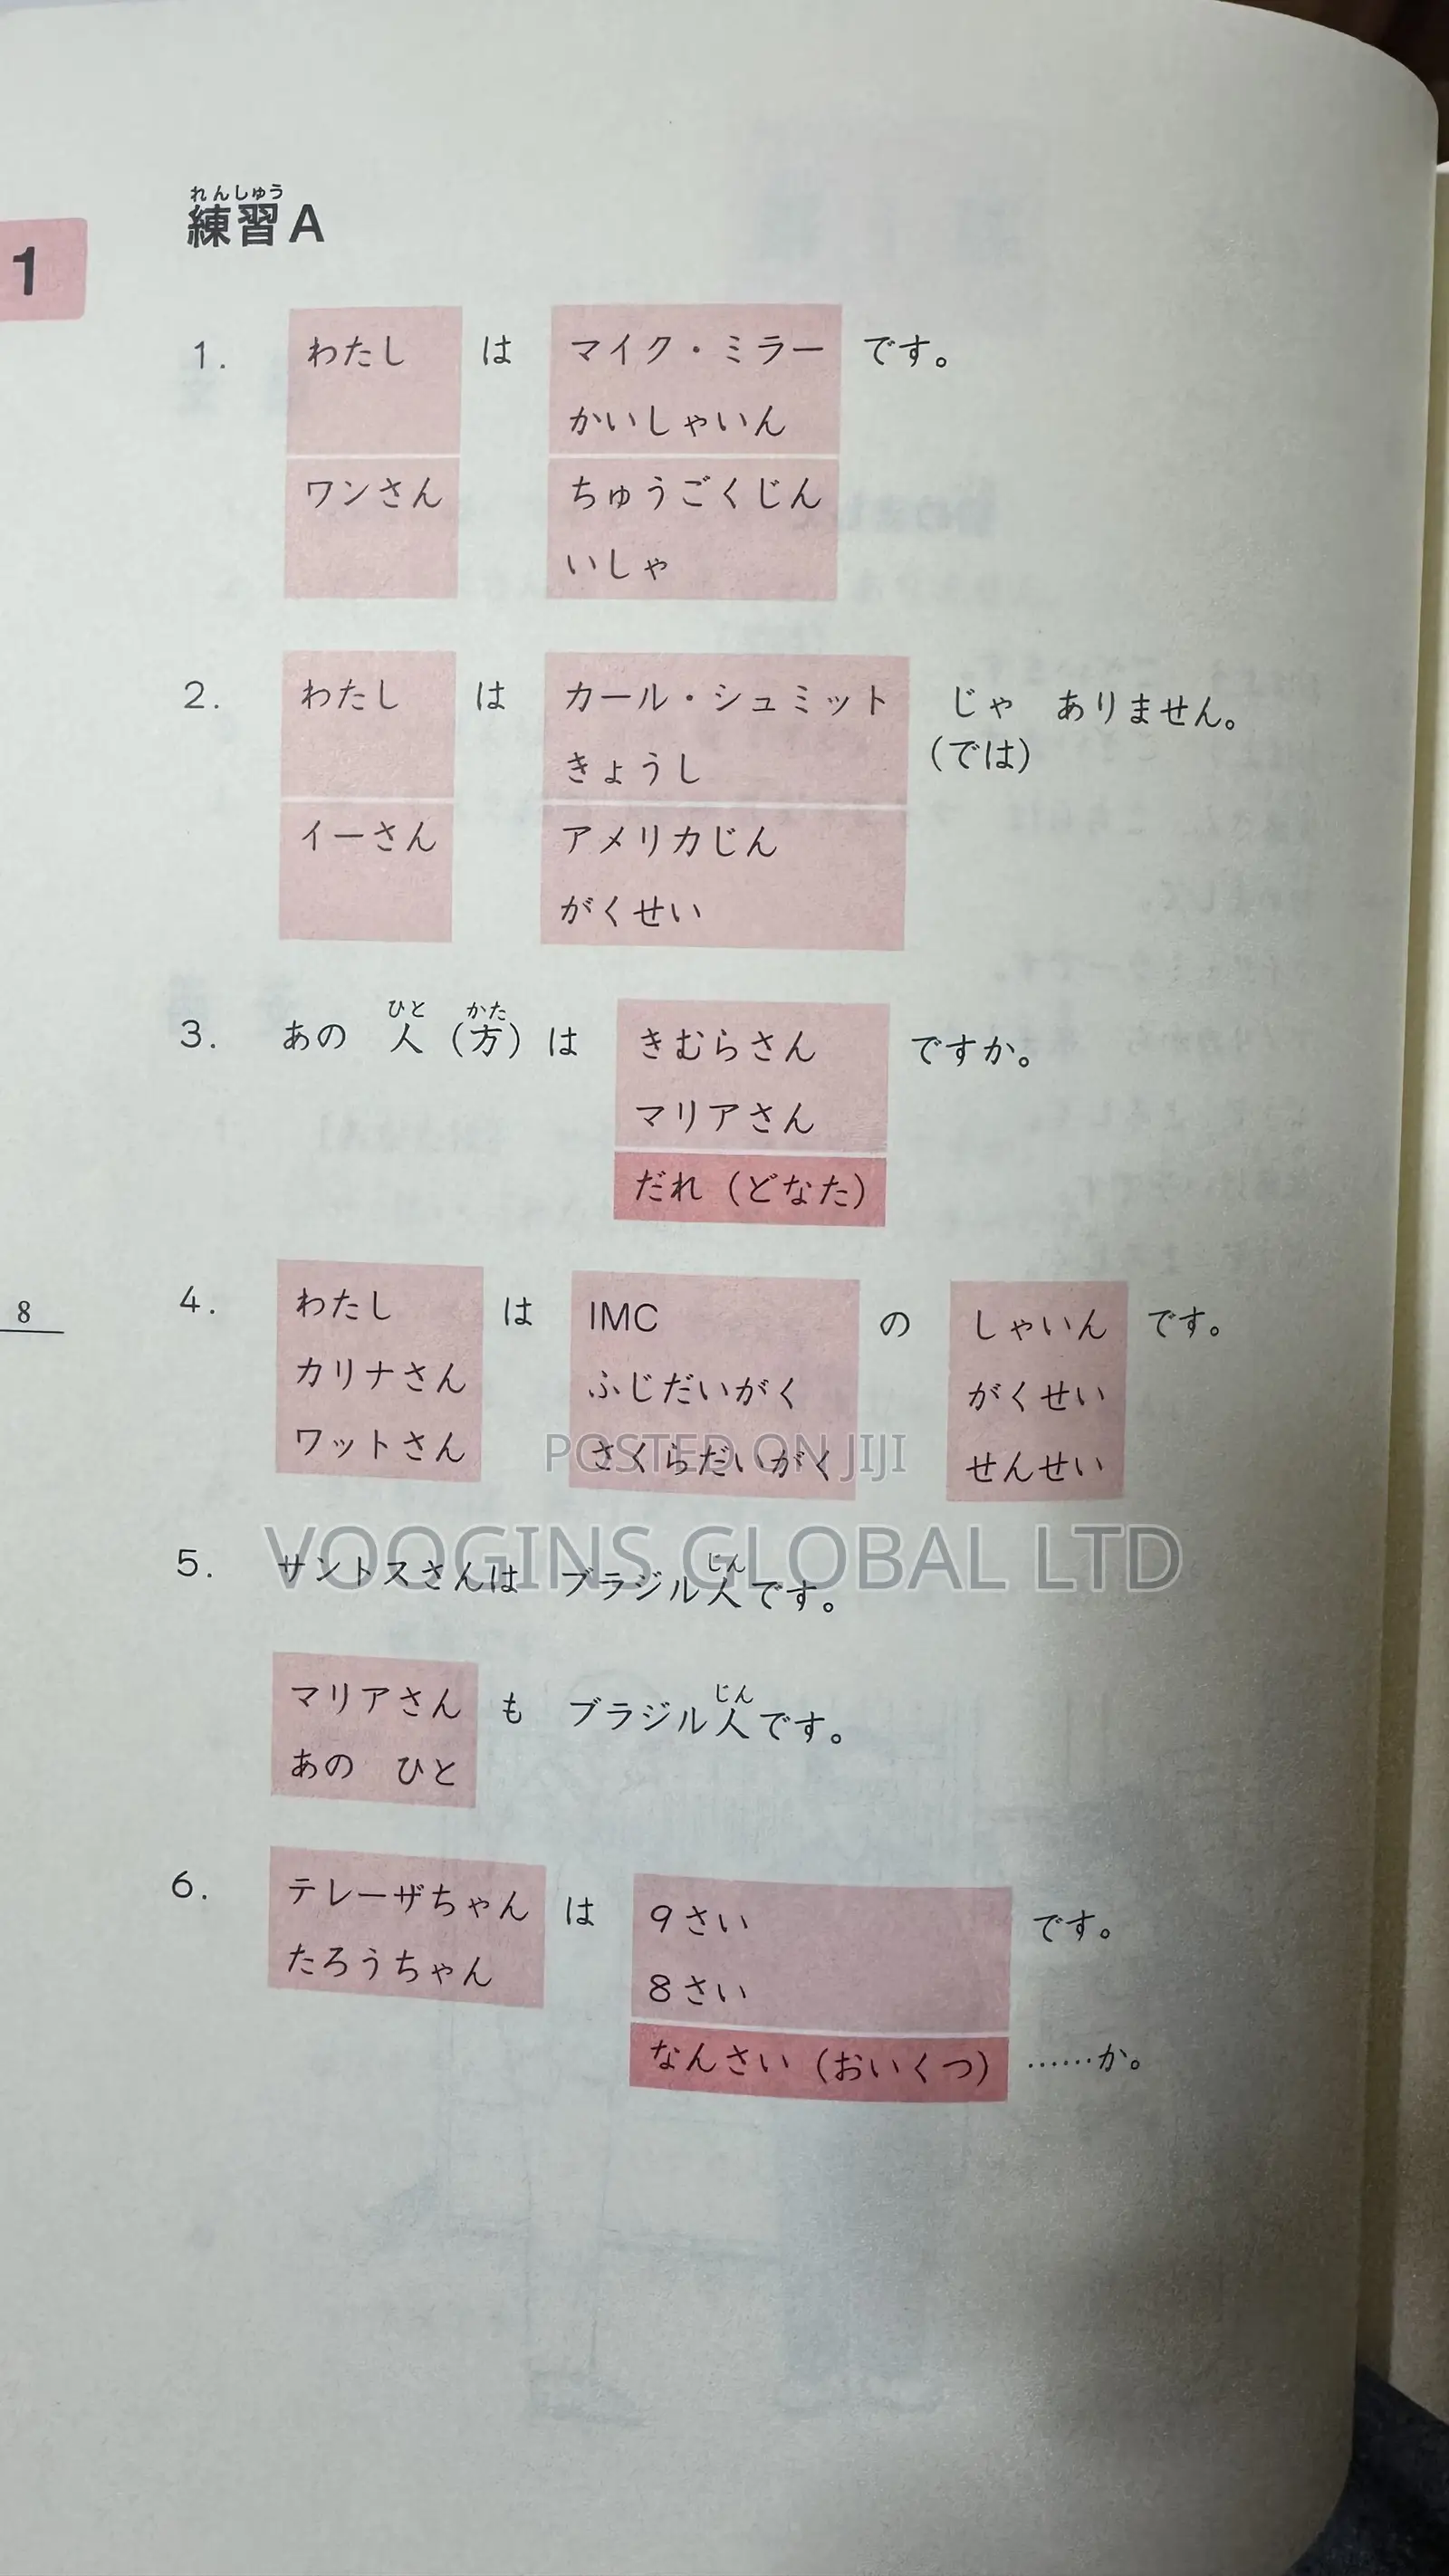 れんしゅう
練習A
1
1. わたし は マイク・ミラー です。
かいしゃいん
ワンさん ちゅうごくじん
いしゃ
2. わたし は カール・シュミット じゃ ありません。
きょうし (では)
イーさん アメリカじん
がくせい
ひと かた
3. あの 人(方)は きむらさん ですか。
マリアさん
だれ(どなた)
8
4. わたし は IMC の しゃいん です。
カリナさん ふじだいがく がくせい
ワットさん さくらだいがく せんせい
POSTED ON JIJI
VOOGINS GLOBAL LTD
じん
5. サントスさんは ブラジル人です。
じん
マリアさん も ブラジル人です。
あの ひと
6. テレーザちゃん は 9さい です。
たろうちゃん 8さい
なんさい(おいくつ) ……か。